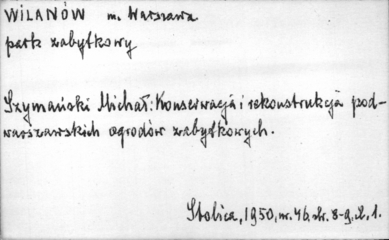 WILANÓW m. Warszawa
park zabytkowy
Szymański Michał: Konserwacja i rekonstrukcja pod-
warszawskich ogrodów zabytkowych.
Stolica, 1950, nr. 46, str. 8-9, il. 1.